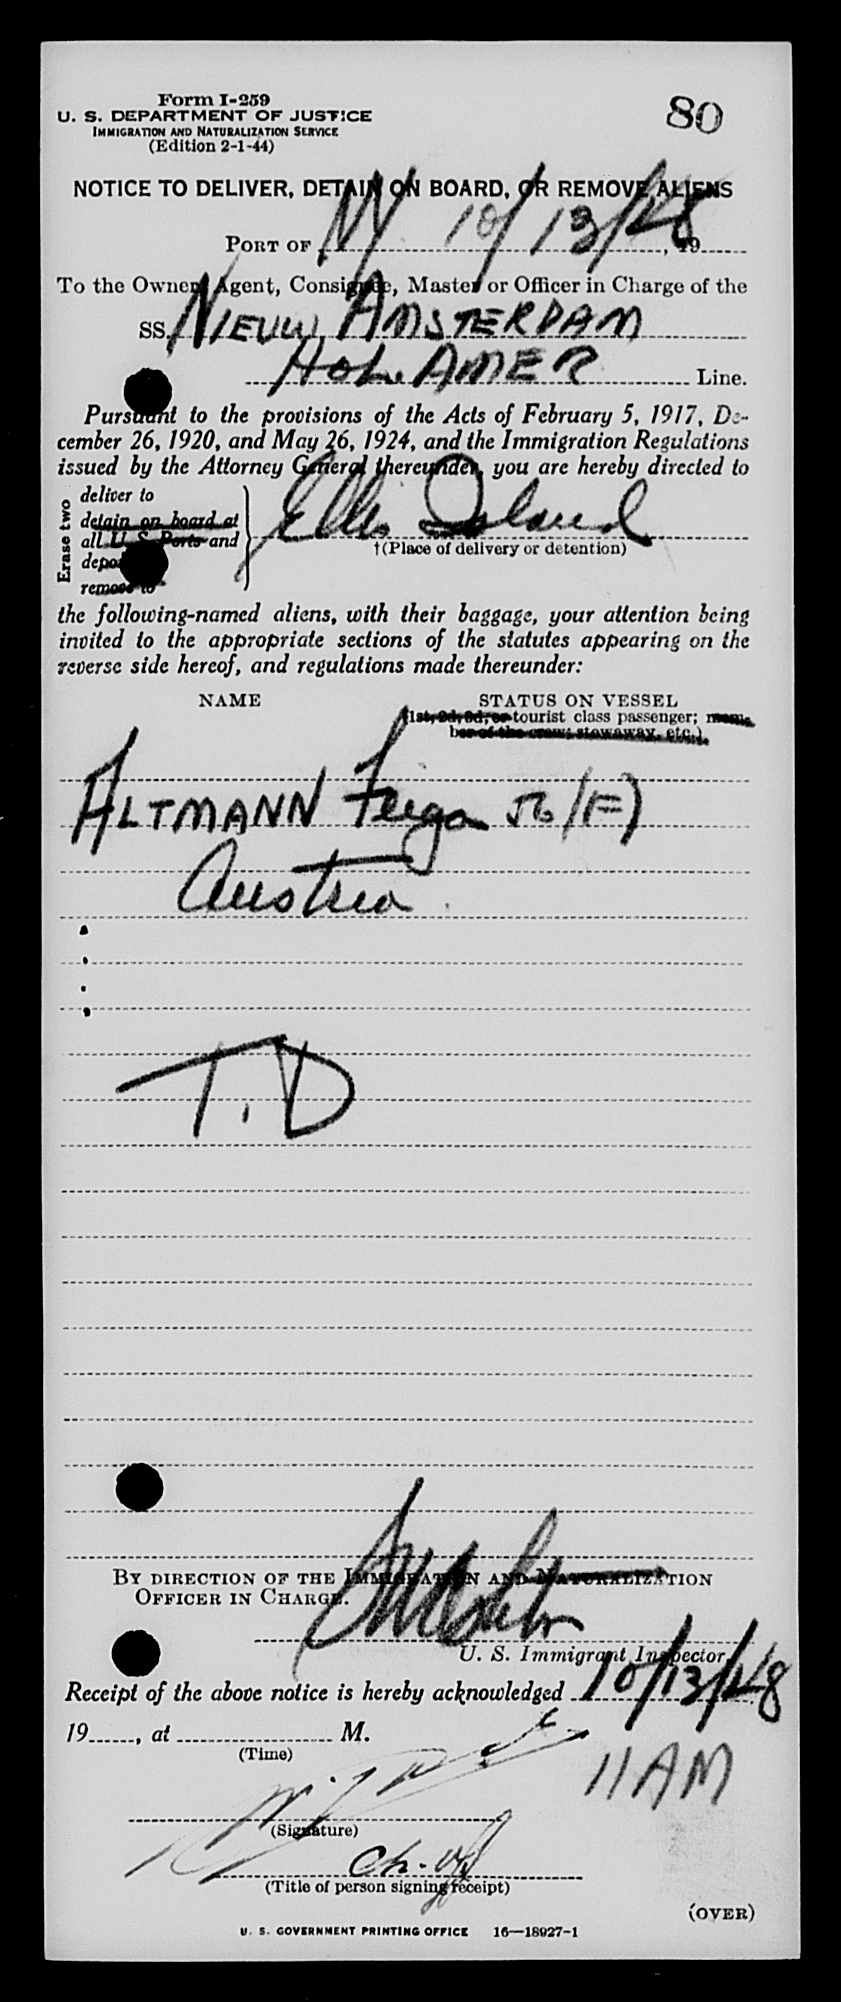 Form I-259
80
U. S. DEPARTMENT OF JUSTICE
IMMIGRATION AND NATURALIZATION SERVICE
(Edition 2-1-44)
NOTICE TO DELIVER, DETAIN ON BOARD, OR REMOVE ALIENS
PORT OF NY 10/13/48, 19
To the Owner, Agent, Consignee, Master or Officer in Charge of the
SS. NIEUW AMSTERDAM
HOL. AMER Line.
Pursuant to the provisions of the Acts of February 5, 1917, De-
cember 26, 1920, and May 26, 1924, and the Immigration Regulations
issued by the Attorney General thereunder, you are hereby directed to
Erase two
deliver to
detain on board at
all U S Ports and
remove to
Ellis Island
†(Place of delivery or detention)
the following-named aliens, with their baggage, your attention being
invited to the appropriate sections of the statutes appearing on the
reverse side hereof, and regulations made thereunder:
NAME STATUS ON VESSEL
(1st, 2d, 3d, or tourist class passenger; mem-
ber of the crew; stowaway, etc.)
ALTMANN Feiga 56 (F)
Austria
T.D
BY DIRECTION OF THE IMMIGRATION AND NATURALIZATION
OFFICER IN CHARGE.
U. S. Immigrant Inspector.
Receipt of the above notice is hereby acknowledged 10/13/48
19......, at M.
(Time)
11 AM
(Signature)
Ch. Off
(Title of person signing receipt)
(OVER)
U. S. GOVERNMENT PRINTING OFFICE 16—18927-1